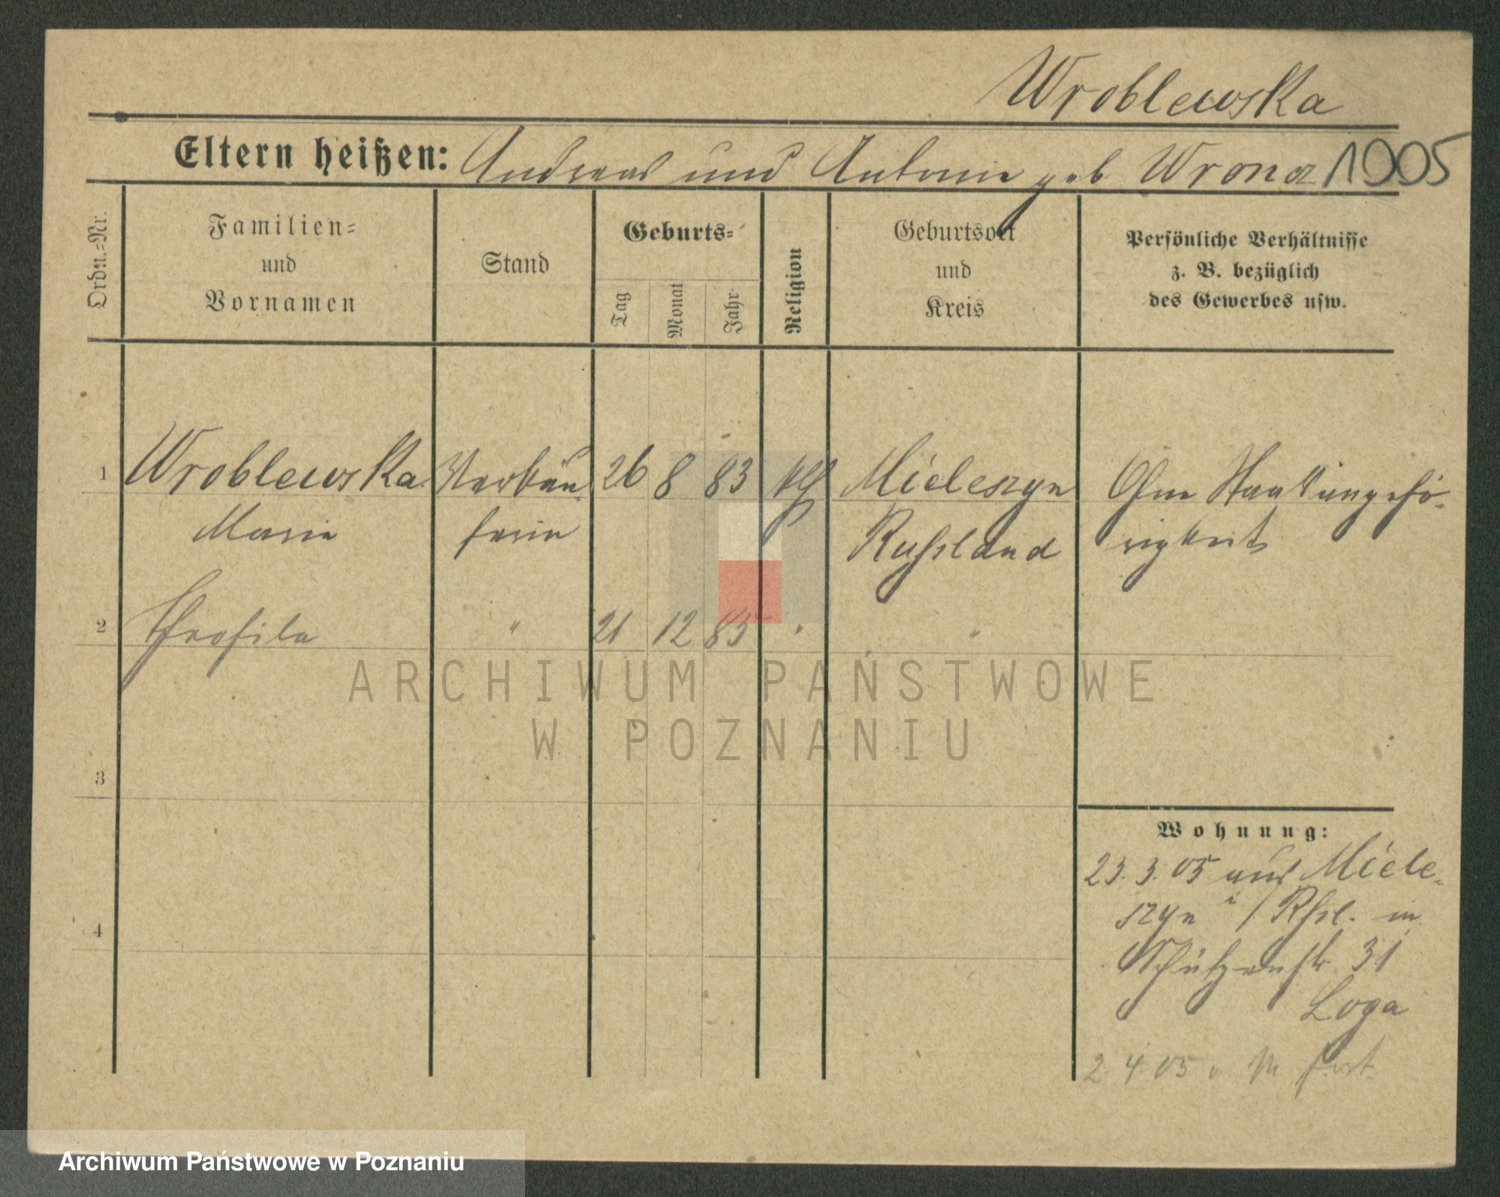 Wroblewska
Eltern heißen: Andreas und Antonie geb Wrona 1905
Ordn.-Nr.
Familien-
und
Vornamen
Stand
Geburts-
Tag
Monat
Jahr
Religion
Geburtsort
und
Kreis
Persönliche Verhältnisse
z. B. bezüglich
des Gewerbes usw.
1 Wroblewska 26 8 83 kth Mieleszyn Ohne Staatsangehö-
Marie Russland rigkeit
2 " 21 12 85 " "
3
4
Wohnung:
23. 3. 05 aus Miele-
szyn / Rssl. in
Schützenstr. 31
Loga
2 4 05 fort
ARCHIWUM PAŃSTWOWE
W POZNANIU
Archiwum Państwowe w Poznaniu